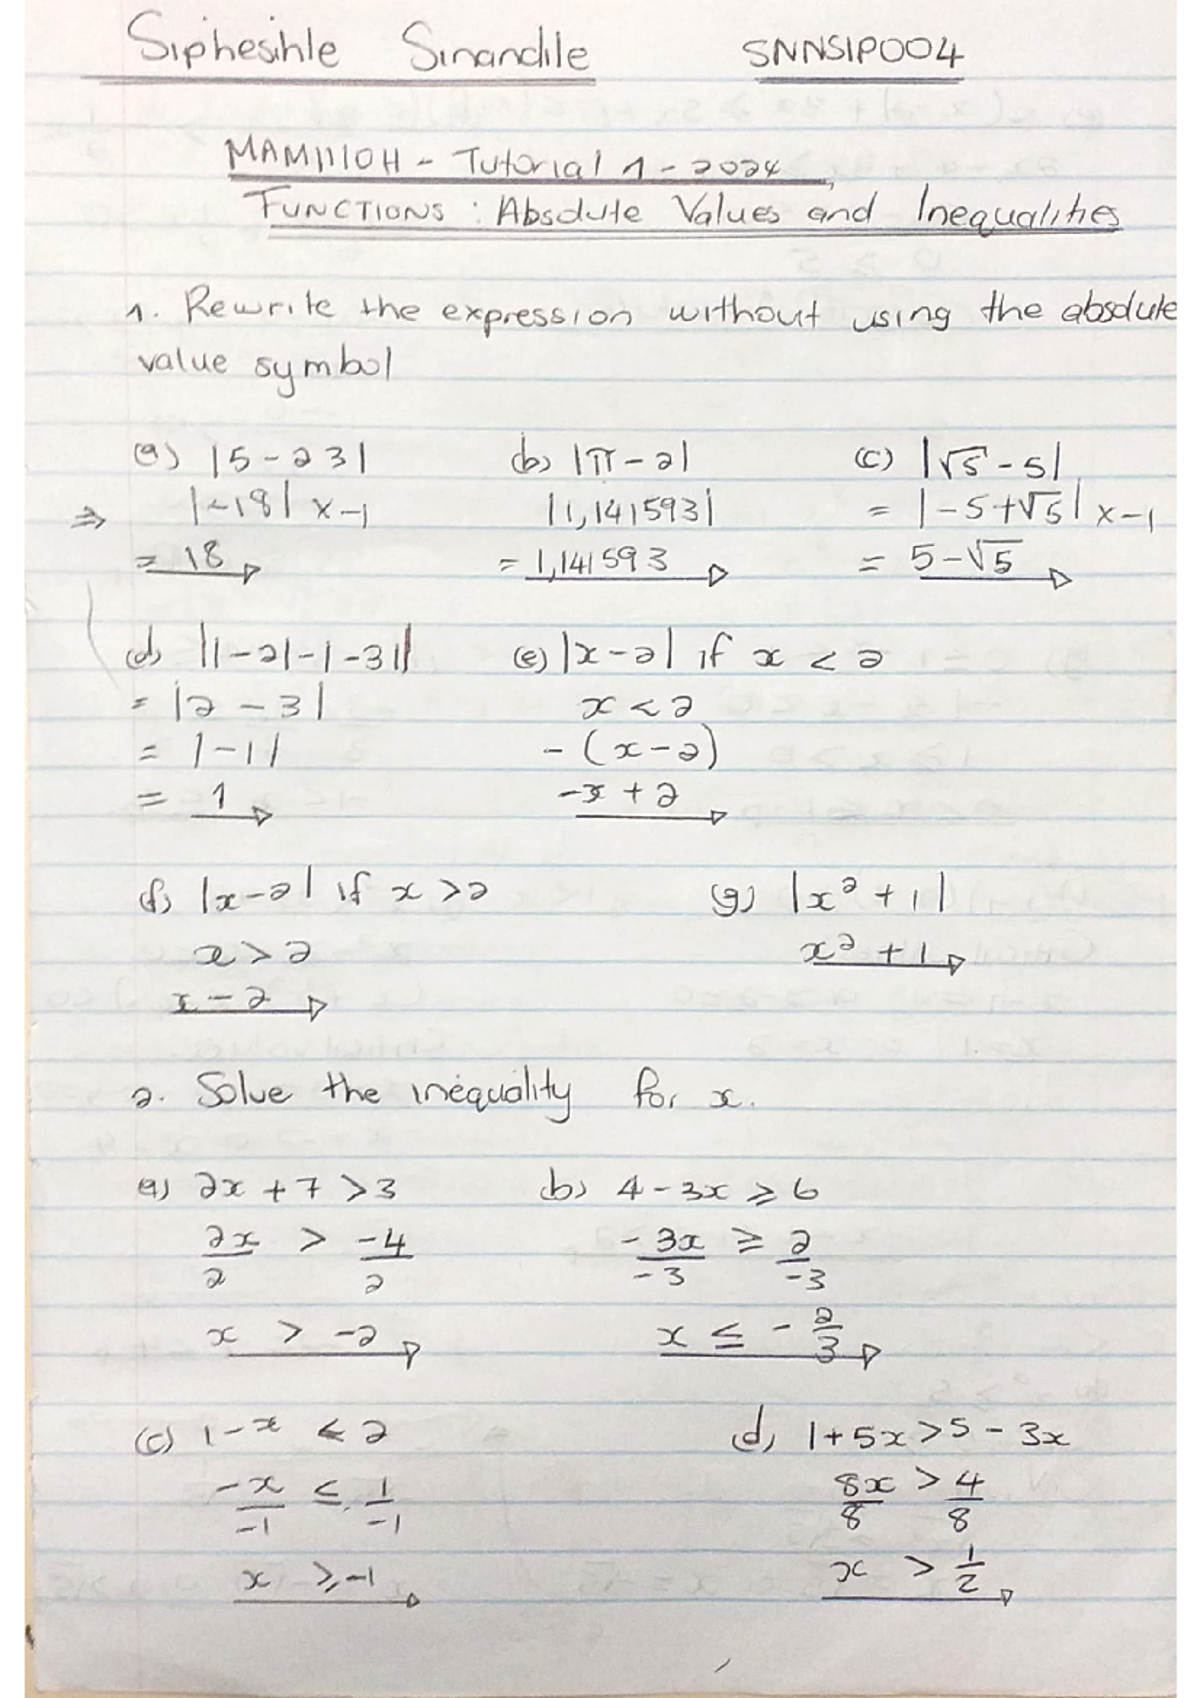 Siphesihle Sinandile SNNSIP004
MAM1110H - Tutorial 1 - 2024
FUNCTIONS : Absolute Values and Inequalities
1. Rewrite the expression without using the absolute
value symbol
(a) |5-23| (b) |π-2| (c) |√5-5|
⇒ |-18| x-1 |1,141593| = |-5+√5| x-1
= 18 = 1,141593 = 5-√5
(d) ||-2|-|-3|| (e) |x-2| if x < 2
= |2-3| x < 2
= |-1| -(x-2)
= 1 -x+2
(f) |x-2| if x > 2 (g) |x²+1|
x > 2 x²+1
x-2
2. Solve the inequality for x.
(a) 2x+7 > 3 (b) 4-3x ≥ 6
2x/2 > -4/2 -3x/-3 ≥ 2/-3
x > -2 x ≤ -2/3
(c) 1-x ≤ 2 (d) 1+5x > 5-3x
-x/-1 ≤ 1/-1 8x/8 > 4/8
x ≥ -1 x > 1/2